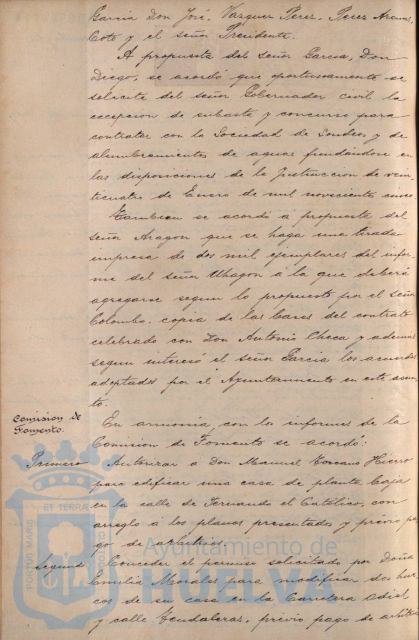 Garcia Don José, Vazquez Perez, Perez Arenas,
Coto y el señor Presidente.
A propuesta del señor Garcia, Don
Diego, se acordó que oportunamente se
solicite del señor Gobernador civil la
excepcion de subasta y concurso para
contratar con la Sociedad de Sondeos y de
alumbramientos de aguas fundandose en
las disposiciones de la Instruccion de vein
ticuatro de Enero de mil novecientos cinco
Tambien se acordó á propuesta del
señor Aragon que se haga una tirada
impresa de dos mil ejemplares del infor-
me del señor Uhagon á la que deberá
agregarse segun lo propuesto por el señor
Colombo, copia de las bases del contrato
celebrado con Don Antonio Checa y ademas
segun interesó el señor Garcia los acuerdos
adoptados por el Ayuntamiento en este asun
to.
Comision de
Fomento.
En armonia con los informes de la
Comision de Fomento se acordó:
Primero Autorizar a Don Manuel Toscano Hierro
para edificar una casa de planta baja
en la calle de Fernando el Católico, con
arreglo á los planos presentados y previo pa
go de arbitrios.
Segundo Conceder el permiso solicitado por Doña
Emilia Morales para modificar dos hue
cos de su casa en la Carretera Odiel
y calle Hendaleras, previo pago de arbitr
Ayuntamiento de
HUELVA
PORTUS MARIS ET TERRÆ CUSTODIA